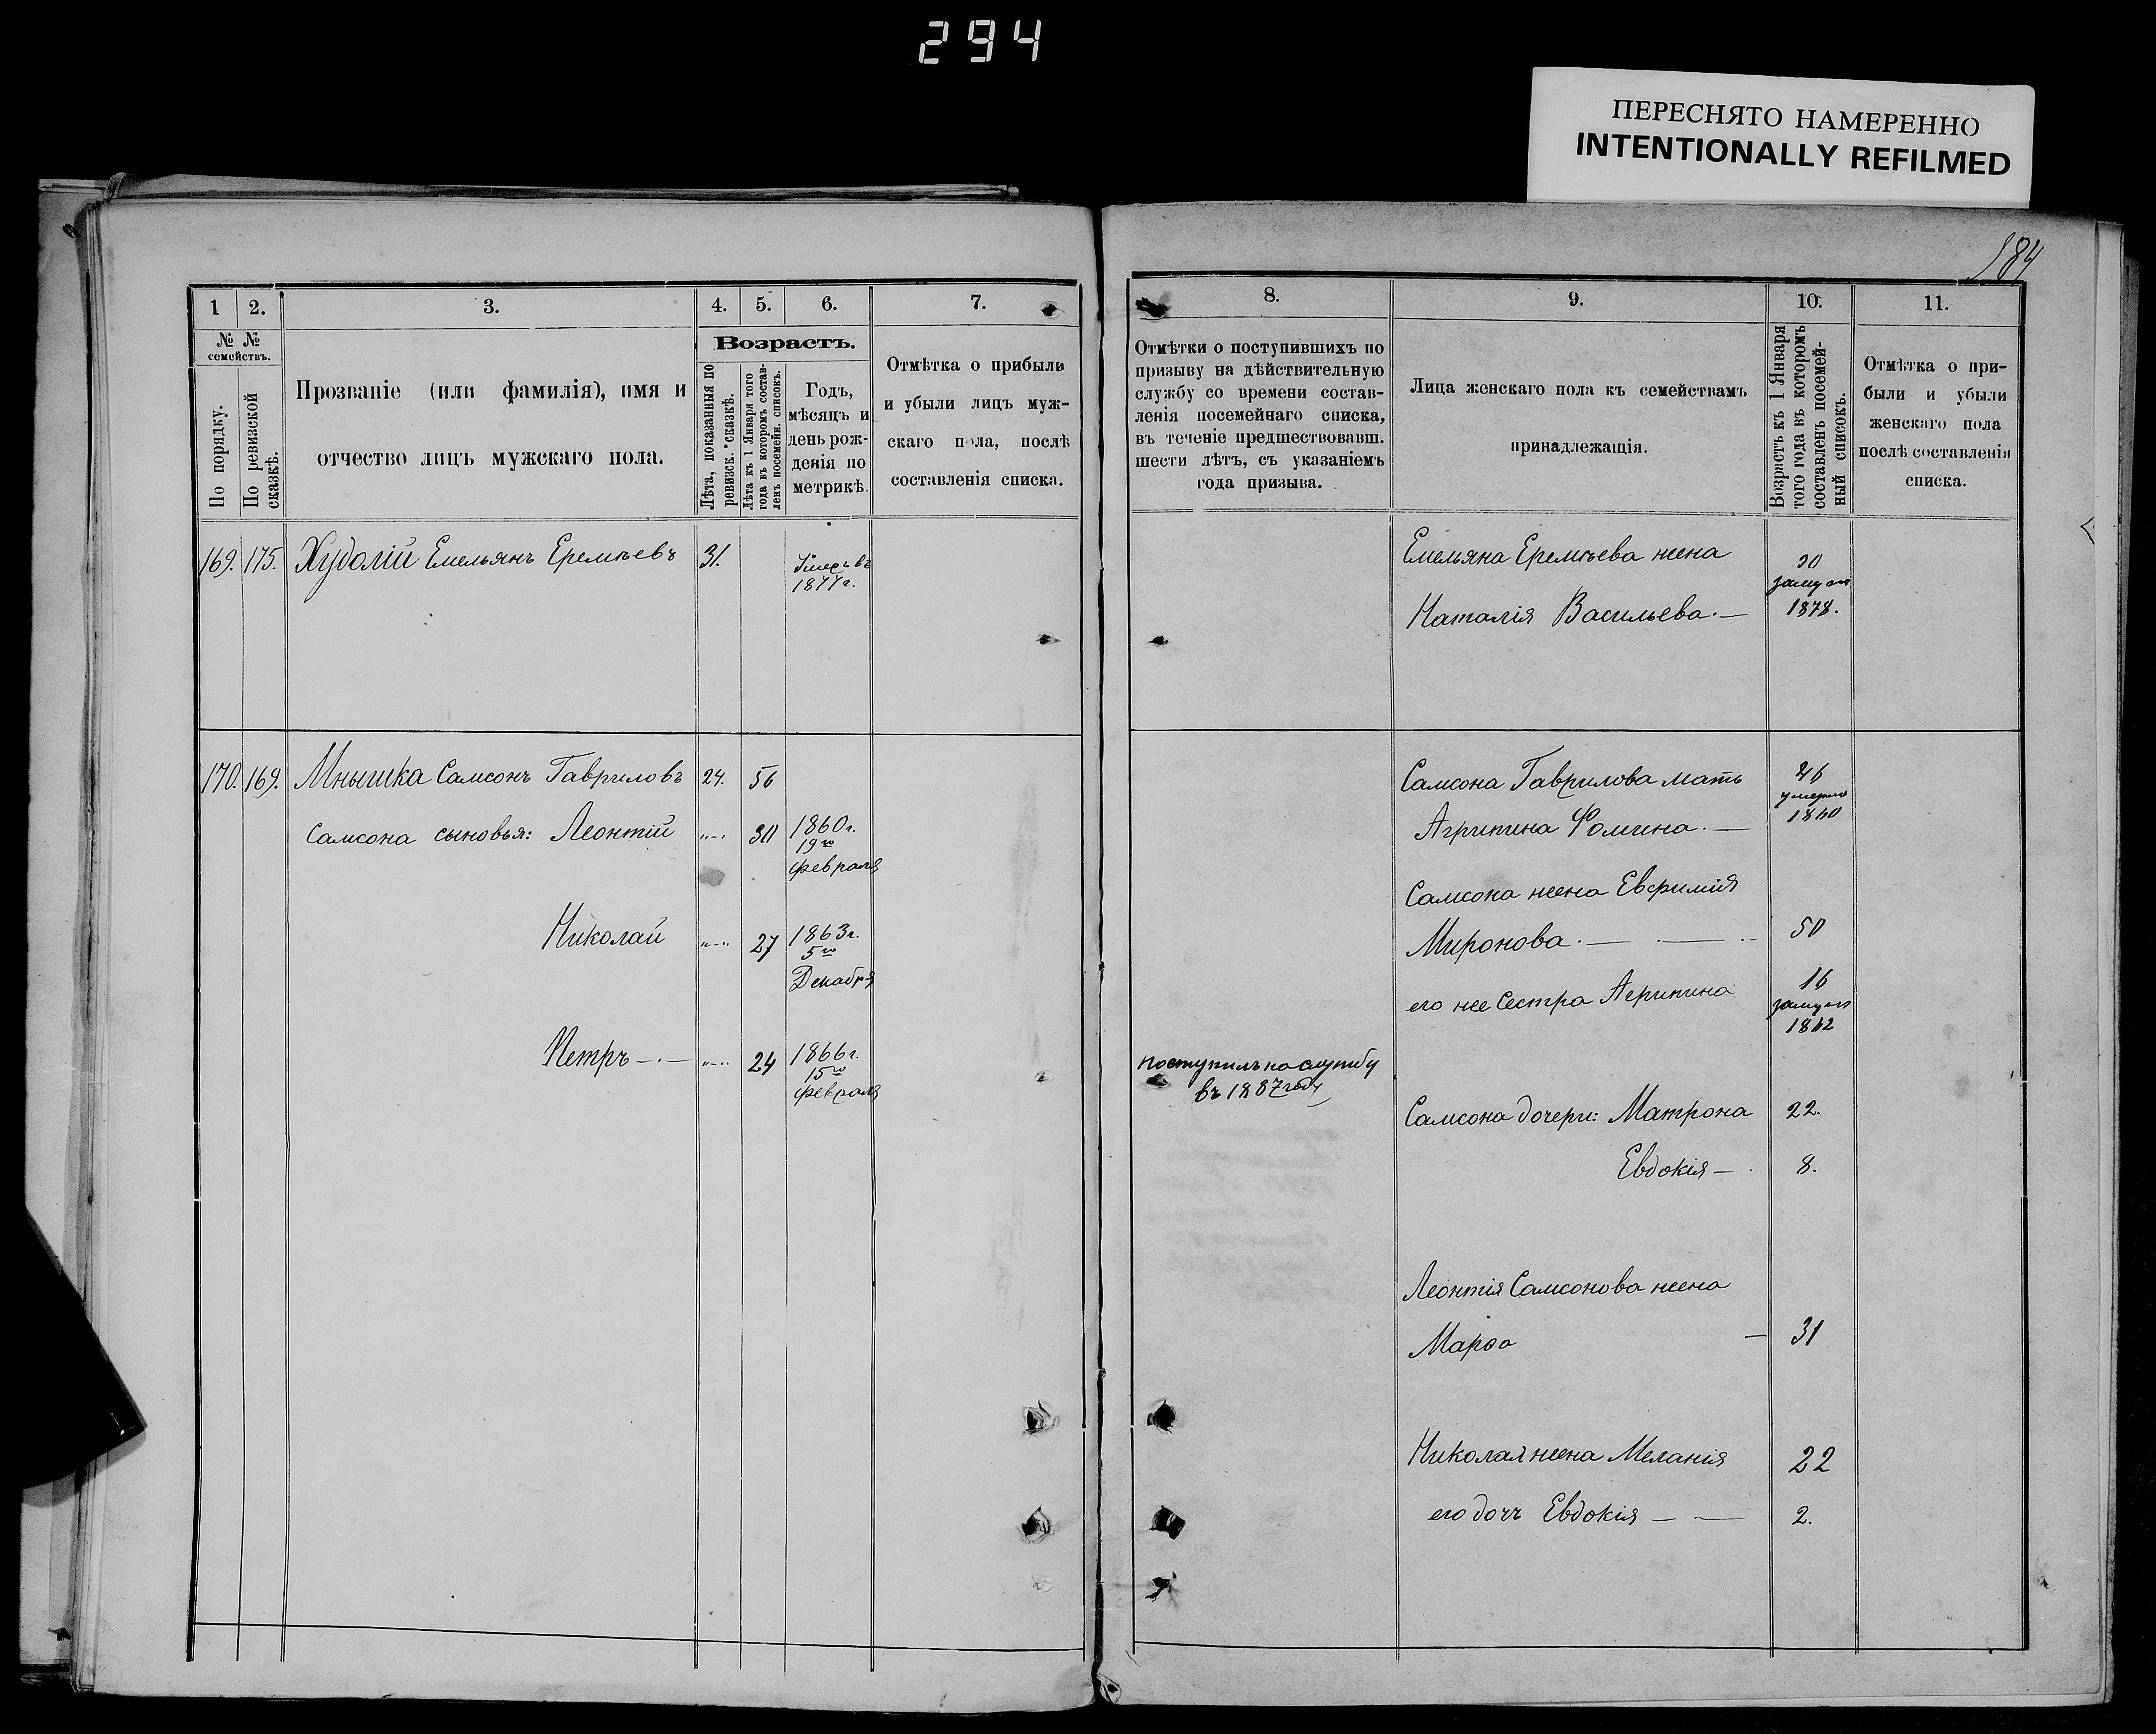 294
ПЕРЕСНЯТО НАМЕРЕННО
INTENTIONALLY REFILMED
184
1
2.
3.
4.
5.
6.
7.
№ №
семействъ.
По порядку.
По ревизской сказкѣ.
Прозваніе (или фамилія), имя и
отчество лицъ мужскаго пола.
Возрастъ.
Лѣта, показанныя по
ревизск. сказкѣ.
Лѣта къ 1 Января того
года въ которомъ состав-
ленъ посемейн. списокъ.
Годъ,
мѣсяцъ и
день рож-
денія по
метрикѣ.
Отмѣтка о прибыли
и убыли лицъ муж-
скаго пола, послѣ
составленія списка.
169. 175. Худолій Емельянъ Еремѣевъ 31. Умеръ въ
1877 г.
170. 169. Мнышка Самсонъ Гавриловъ 24. 56
Самсона сыновья: Леонтій „-„ 30 1860 г.
19го
февраля
Николай „-„ 27 1863 г.
5го
Декабря
Петръ — . — „-„ 24 1866 г.
15го
февраля
8.
9.
10.
11.
Отмѣтки о поступившихъ по
призыву на дѣйствительную
службу со времени состав-
ленія посемейнаго списка,
въ теченіе предшествовавш.
шести лѣтъ, съ указаніемъ
года призыва.
Лица женскаго пола къ семействамъ
принадлежащія.
Возрастъ къ 1 Января
того года въ которомъ
составленъ посемей-
ный списокъ.
Отмѣтка о при-
были и убыли
женскаго пола
послѣ составленія
списка.
Емельяна Еремѣева жена
Наталія Васильева. —
замуж
1878.
Самсона Гаврилова мать 46
умерла
Агрипина Фомина. — 1860
Самсона жена Евфимія
Миронова. — . — 50
его же Сестра Агрипина 16
замуж
1862
поступилъ на службу
въ 1887 году
Самсона дочери: Матрона 22.
Евдокія — . 8.
Леонтія Самсонова жена
Марѳа — 31
Николая жена Меланія 22
его дочь Евдокія — — 2.